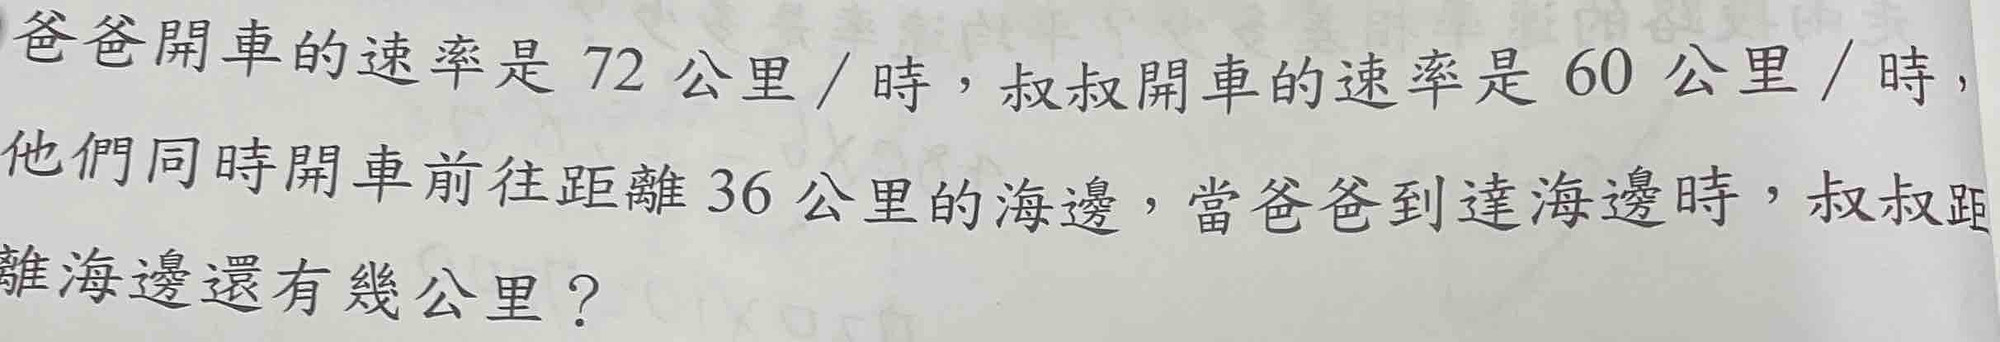 爸爸開車的速率是 72 公里／時，叔叔開車的速率是 60 公里／時，
他們同時開車前往距離 36 公里的海邊，當爸爸到達海邊時，叔叔距
離海邊還有幾公里？